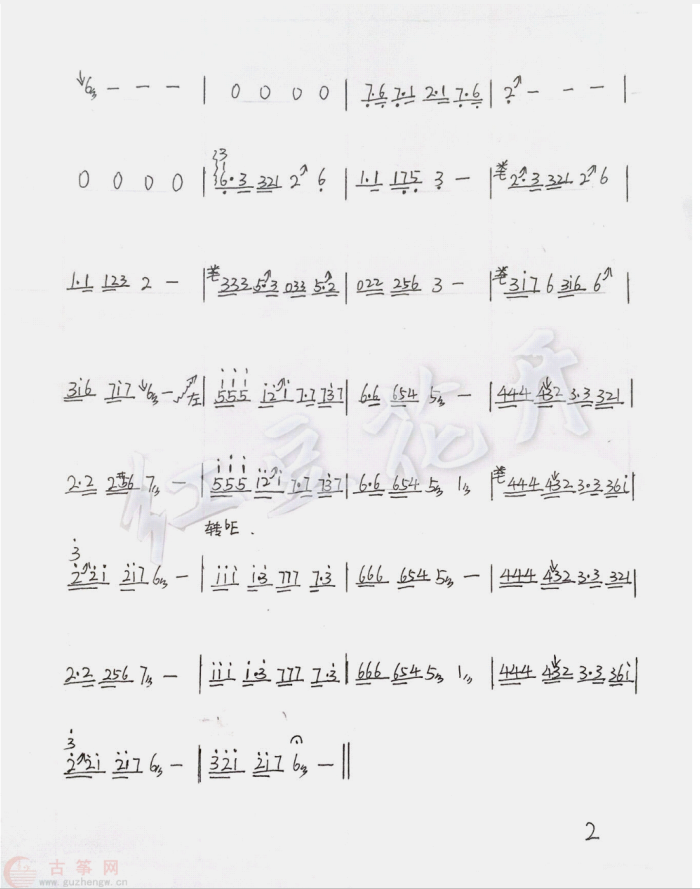 6 - - - | 0 0 0 0 | 7·6 7·1 2·1 7·6 | 2 - - - |
0 0 0 0 | 6·3 321 2 6 | 1·1 175 3 - | 2·3 321 2 6 |
1·1 123 2 - | 333 5·3 033 5·2 | 022 256 3 - | 3i7 6 3i6 6 |
3i6 7i7 6 - 左 | 555 i2i 7·7 737 | 6·6 654 5 - | 444 432 3·3 321 |
2·2 256 7 - | 555 i2i 7·7 737 | 6·6 654 5 1 | 444 432 3·3 36i |
转bE.
3
2 2i 2i7 6 - | iii i·3 777 7·3 | 666 654 5 - | 444 432 3·3 321 |
2·2 256 7 - | iii i·3 777 7·3 | 666 654 5 1 | 444 432 3·3 36i |
3
2 2i 2i7 6 - | 32i 2i7 6 - ||
2
红豆花开
古筝网
www.guzhengw.cn